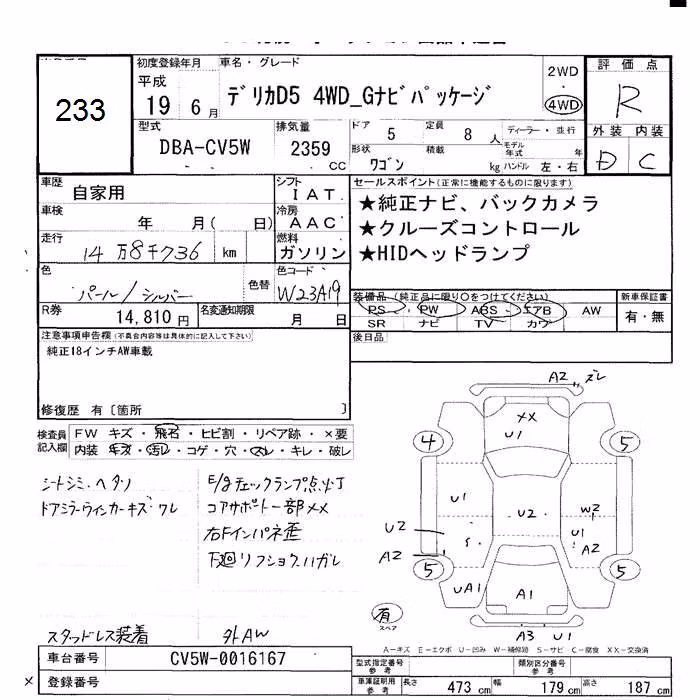 233
初度登録年月
平成
19 6月
車名・グレード
デリカD5 4WD_Gナビパッケージ
2WD
・
4WD
評価点
R
外装 内装
D C
型式
DBA-CV5W
排気量
2359
CC
ドア 5
定員 8人
ディーラー・並行
形状 ワゴン
積載 kg
モデル年式 年
ハンドル 左・右
車歴
自家用
シフト
IAT
車検
年 月( 日)
冷房
AAC
走行
14万8千736 km
燃料
ガソリン
セールスポイント(正常に機能するものに限ります)
★純正ナビ、バックカメラ
★クルーズコントロール
★HIDヘッドランプ
色
パール/シルバー
色替
色コード
W23A19
R券
14,810円
名変通知期限
月 日
装備品(純正品に限り○をつけてください)
PS PW ABS エアB AW
SR ナビ TV カワ
新車保証書
有・無
後日品
注意事項申告欄(不具合内容等は具体的に記入して下さい)
純正18インチAW車載
修復歴 有[箇所 ]
検査員記入欄
FW キズ・飛石・ヒビ割・リペア跡・×要
内装 キズ・汚レ・コゲ・穴・スレ・キレ・破レ
シートシミ・ヘタリ
ドアミラーウィンカーキズ・ワレ
E/gチェックランプ点灯
コアサポート一部××
右Fインパネ歪
下廻リフショクハガレ
スタッドレス装着
外AW
A2 ズレ
XX
U1
4
5
U1
U2
W2
U2
S
U1
A2
A2
5
5
UA1
A1
有
スペア
A3 U1
A-キズ E-エクボ U-凹み W-補修跡 S-サビ C-腐食 XX-交換済
車台番号
CV5W-0016167
登録番号
型式指定番号
参考
類別区分番号
参考
車庫証明用
参考
長さ 473 cm
幅 179 cm
高さ 187 cm